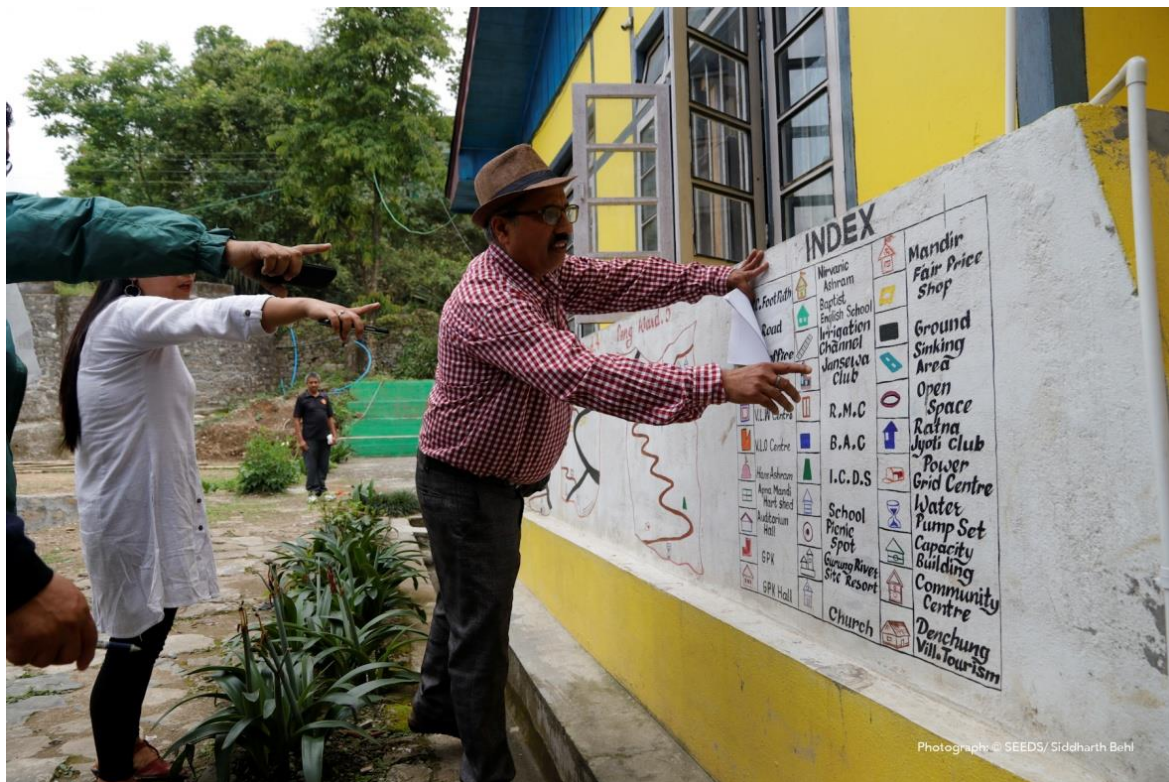 Ward.5
INDEX
FootPath
Road
office
V.L.W Centre
V.L.O Centre
Home Ashram
Apna Mandi
Hart shed
Auditorium
Hall
GPK
GPK Hall
Nirvanic
Ashram
Baptist
English School
Irrigation
Channel
Jansewa
Club
R.M.C
B.A.C
I.C.D.S
School
Picnic
Spot
Gurung River
Site Resort
Church
Mandir
Fair Price
Shop
Ground
Sinking
Area
Open
Space
Ratna
Jyoti Club
Power
Grid Centre
Water
Pump Set
Capacity
Building
Community
Centre
Denchung
Vill. Tourism
Photograph: © SEEDS/ Siddharth Behl